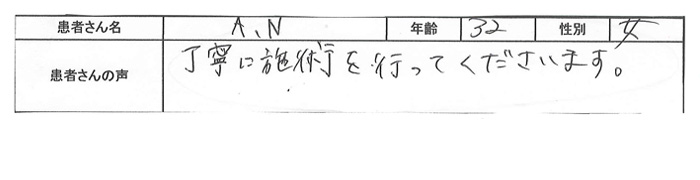 患者さん名 A、N 年齢 32 性別 女
患者さんの声 丁寧に施術を行ってくださいます。